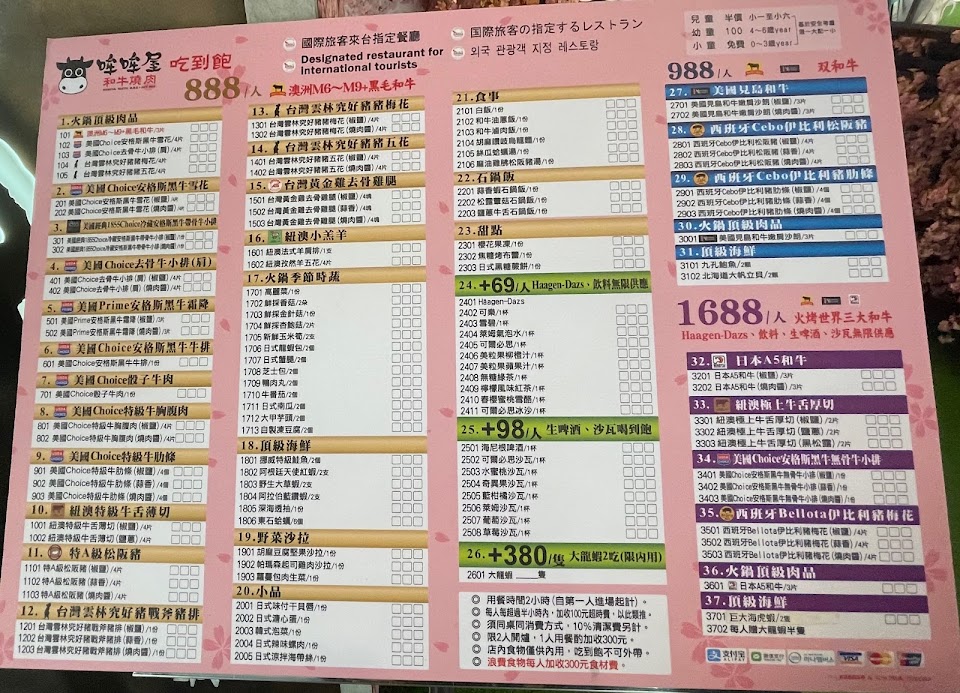 哞哞屋
和牛燒肉
吃到飽
888/人 澳洲M6～M9+黑毛和牛
國際旅客來台指定餐廳
Designated restaurant for
International tourists
国際旅客の指定するレストラン
외국 관광객 지정 레스토랑
兒童 半價 小一至小六
幼童 100 4～6歲/year
小童 免費 0～3歲/year
1.火鍋頂級肉品
101 澳洲M6～M9+黑毛和牛/3片
102 美國Choice安格斯黑牛雪花/4片
103 美國Choice去骨牛小排(肩)/4片
104 台灣雲林究好豬豬梅花/4片
105 台灣雲林究好豬豬五花/4片
2. 美國Choice安格斯黑牛雪花
201 美國Choice安格斯黑牛雪花(椒鹽)/3片
202 美國Choice安格斯黑牛雪花(燒肉醬)/3片
3. 美國經典1855Choice冷藏安格斯黑牛帶骨牛小排
301 美國經典1855Choice冷藏安格斯黑牛帶骨牛小排(椒鹽)/1片
302 美國經典1855Choice冷藏安格斯黑牛帶骨牛小排(燒肉醬)/1片
4. 美國Choice去骨牛小排(肩)
401 美國Choice去骨牛小排(肩)(椒鹽)/4片
402 美國Choice去骨牛小排(肩)(燒肉醬)/4片
5. 美國Prime安格斯黑牛霜降
501 美國Prime安格斯黑牛霜降(椒鹽)/3片
502 美國Prime安格斯黑牛霜降(燒肉醬)/3片
6. 美國Choice安格斯黑牛牛排
601 美國Choice安格斯黑牛牛排/1份
7. 美國Choice骰子牛肉
701 美國Choice骰子牛肉/1份
8. 美國Choice特級牛胸腹肉
801 美國Choice特級牛胸腹肉(椒鹽)/4片
802 美國Choice特級牛胸腹肉(燒肉醬)/4片
9. 美國Choice特級牛肋條
901 美國Choice特級牛肋條(椒鹽)/4個
902 美國Choice特級牛肋條(蒜香)/4個
903 美國Choice特級牛肋條(燒肉醬)/4個
10. 紐澳特級牛舌薄切
1001 紐澳特級牛舌薄切(椒鹽)/4片
1002 紐澳特級牛舌薄切(鹽蔥)/2片
11. 特A級松阪豬
1101 特A級松阪豬(椒鹽)/4片
1102 特A級松阪豬(蒜香)/4片
1103 特A級松阪豬(燒肉醬)/4片
12. 台灣雲林究好豬戰斧豬排
1201 台灣雲林究好豬戰斧豬排(椒鹽)/1份
1202 台灣雲林究好豬戰斧豬排(蒜香)/1份
1203 台灣雲林究好豬戰斧豬排(燒肉醬)/1份
13. 台灣雲林究好豬豬梅花
1301 台灣雲林究好豬豬梅花(椒鹽)/4片
1302 台灣雲林究好豬豬梅花(燒肉醬)/4片
14. 台灣雲林究好豬豬五花
1401 台灣雲林究好豬豬五花(椒鹽)/4片
1402 台灣雲林究好豬豬五花(燒肉醬)/4片
15. 台灣黃金雞去骨雞腿
1501 台灣黃金雞去骨雞腿(椒鹽)/4塊
1502 台灣黃金雞去骨雞腿(蒜香)/4塊
1503 台灣黃金雞去骨雞腿(燒肉醬)/4塊
16. 紐澳小羔羊
1601 紐澳法式羊肩排/1支
1602 紐澳孜然羊五花/4片
17.火鍋季節時蔬
1701 高麗菜/1份
1702 鮮採香菇/2朵
1703 鮮採金針菇/1份
1704 鮮採杏鮑菇/2片
1705 新鮮玉米筍/2支
1706 日式龍蝦包/2個
1707 日式蟹腿/2個
1708 芝士包/2個
1709 鴨肉丸/2個
1710 牛番茄/2個
1711 日式南瓜/2個
1712 大甲芋頭/2個
1713 自製凍豆腐/2個
18.頂級海鮮
1801 挪威特級鮭魚/2個
1802 阿根廷天使紅蝦/2支
1803 野生大草蝦/2支
1804 阿拉伯藍鑽蝦/2支
1805 深海透抽/1份
1806 東石蛤蠣/6個
19.野菜沙拉
1901 胡麻豆腐堅果沙拉/1份
1902 帕瑪森起司雞肉沙拉/1份
1903 蘿蔓包肉生菜/1份
20.小品
2001 日式味付干貝唇/1份
2002 日式溏心蛋/1份
2003 韓式泡菜/1份
2004 日式辣味螺肉/1份
2005 日式涼拌海帶絲/1份
21.食事
2101 白飯/1份
2102 和牛油蔥飯/1份
2103 和牛滷肉飯/1份
2104 胡麻讚岐烏龍麵/1份
2105 絲瓜蛤蠣湯/1份
2106 麻油雞松阪豬湯/1份
22.石鍋飯
2201 蒜香蝦石鍋飯/1份
2202 松露蕈菇石鍋飯/1份
2203 鹽蔥牛舌石鍋飯/1份
23.甜點
2301 櫻花果凍/1份
2302 焦糖烤布蕾/1份
2303 日式黑糖蕨餅/1份
24.+69/人 Haagen-Dazs、飲料無限供應
2401 Häagen-Dazs
2402 可樂/1杯
2403 雪碧/1杯
2404 萊姆氣泡水/1杯
2405 可爾必思/1杯
2406 美粒果柳橙汁/1杯
2407 美粒果蘋果汁/1杯
2408 無糖綠茶/1杯
2409 檸檬風味紅茶/1杯
2410 春櫻蜜桃雪酪/1杯
2411 可爾必思冰沙/1杯
25.+98/人 生啤酒、沙瓦喝到飽
2501 海尼根啤酒/1杯
2502 可爾必思沙瓦/1杯
2503 水蜜桃沙瓦/1杯
2504 奇異果沙瓦/1杯
2505 藍柑橘沙瓦/1杯
2506 萊姆沙瓦/1杯
2507 葡萄沙瓦/1杯
2508 草莓沙瓦/1杯
26.+380/隻 大龍蝦2吃(限內用)
2601 大龍蝦 隻
◎ 用餐時間2小時(自第一人進場起計)。
◎ 每人每超過半小時內，加收100元超時費，以此類推。
◎ 須同桌同消費方式，10%清潔費另計。
◎ 限2人開爐，1人用餐酌加收300元。
◎ 店內食物僅供內用，吃到飽不可外帶。
◎ 浪費食物每人加收300元食材費。
988/人 双和牛
27. 美國見島和牛
2701 美國見島和牛嫩肩沙朗(椒鹽)/3片
2702 美國見島和牛嫩肩沙朗(燒肉醬)/3片
28. 西班牙Cebo伊比利松阪豬
2801 西班牙Cebo伊比利松阪豬(椒鹽)/2片
2802 西班牙Cebo伊比利松阪豬(蒜香)/2片
2803 西班牙Cebo伊比利松阪豬(燒肉醬)/2片
29. 西班牙Cebo伊比利豬肋條
2901 西班牙Cebo伊比利豬肋條(椒鹽)/4個
2902 西班牙Cebo伊比利豬肋條(蒜香)/4個
2903 西班牙Cebo伊比利豬肋條(燒肉醬)/4個
30.火鍋頂級肉品
3001 美國見島和牛嫩肩沙朗/3片
31.頂級海鮮
3101 九孔鮑魚/2顆
3102 北海道大帆立貝/2顆
1688/人 火烤世界三大和牛
Haagen-Dazs、飲料、生啤酒、沙瓦無限供應
32. 日本A5和牛
3201 日本A5和牛(椒鹽)/3片
3202 日本A5和牛(燒肉醬)/3片
33. 紐澳極上牛舌厚切
3301 紐澳極上牛舌厚切(椒鹽)/2片
3302 紐澳極上牛舌厚切(鹽蔥)/2片
3303 紐澳極上牛舌厚切(黑松露)/2片
34. 美國Choice安格斯黑牛無骨牛小排
3401 美國Choice安格斯黑牛無骨牛小排(椒鹽)/3片
3402 美國Choice安格斯黑牛無骨牛小排(蒜香)/3片
3403 美國Choice安格斯黑牛無骨牛小排(燒肉醬)/3片
35. 西班牙Bellota伊比利豬梅花
3501 西班牙Bellota伊比利豬梅花(椒鹽)/4片
3502 西班牙Bellota伊比利豬梅花(蒜香)/4片
3503 西班牙Bellota伊比利豬梅花(燒肉醬)/4片
36.火鍋頂級肉品
3601 日本A5和牛/3片
37.頂級海鮮
3701 巨大海虎蝦/2尾
3702 每人贈大龍蝦半隻
支付宝
VISA